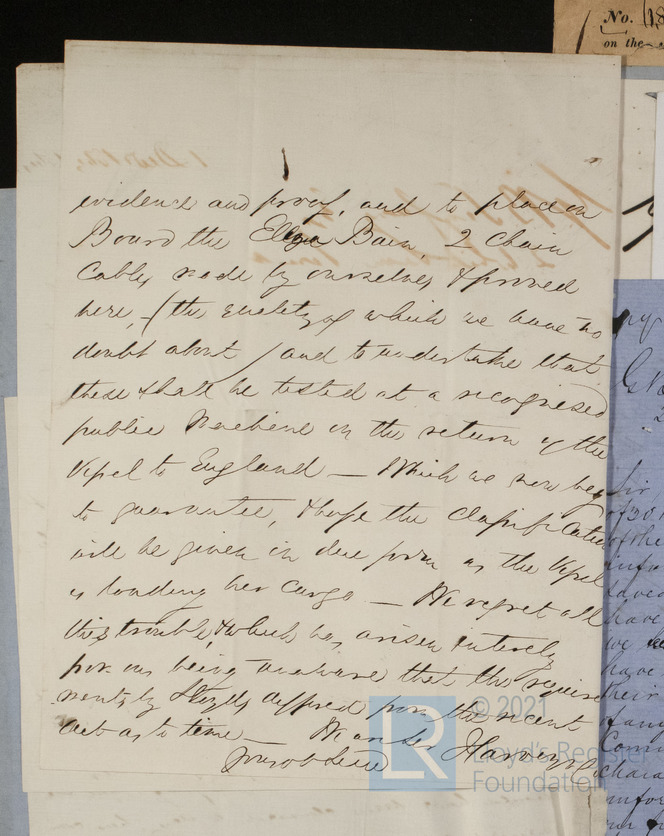 No. 18
on the
evidence and proof, and to place on
Board the Eliza Bain, 2 Chain
Cables made by ourselves & proved
here, (the quality of which we have no
doubt about) and to undertake that
these shall be tested at a recognised
public Machine on the return of the
Vessel to England — Which we now beg
to guarantee, & hope the Classification
will be given in due form as the Vessel
is loading her Cargo — We regret all
this trouble, & which has arisen entirely
from our being unaware that the require
ments by Lloyds differed from the recent
act as to time — We are Sirs
Your ob Serv Harvey & Co
© 2021
LR Lloyd's Register
Foundation